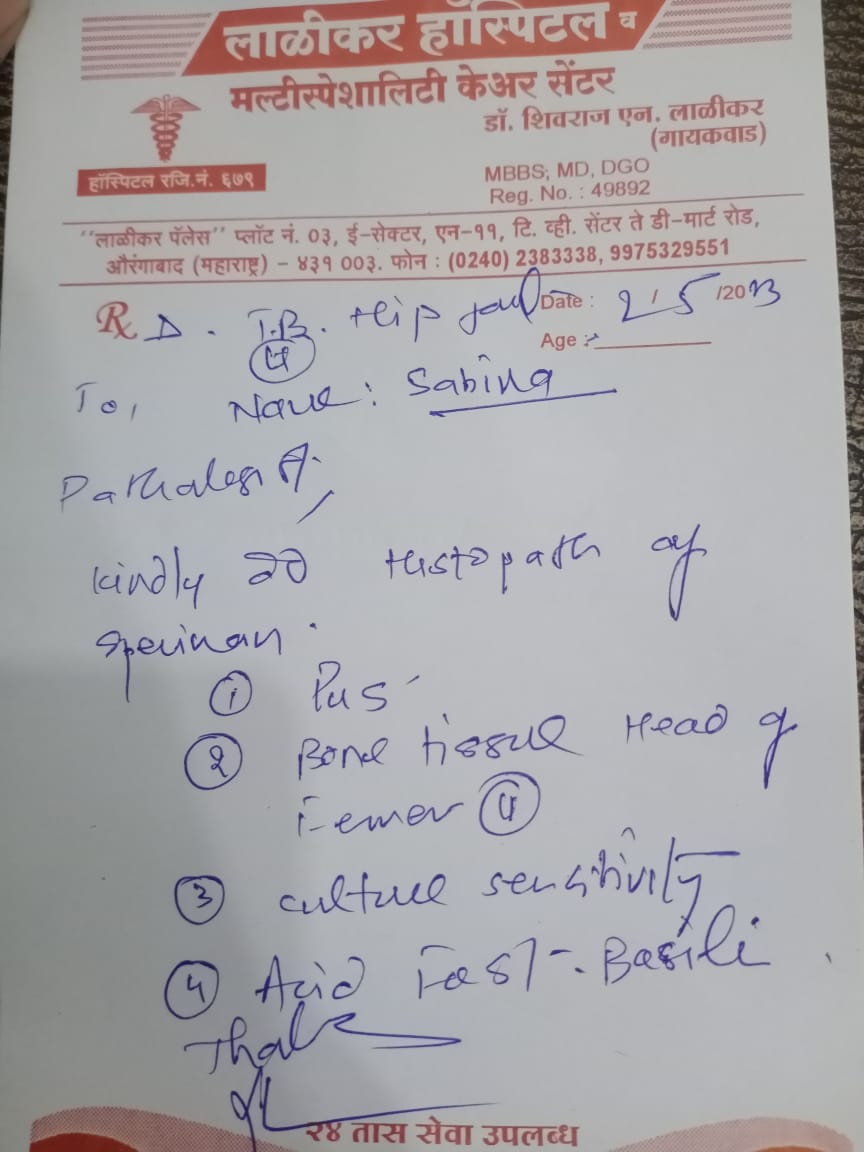 लाळीकर हॉस्पिटल व
मल्टीस्पेशालिटी केअर सेंटर
डॉ. शिवराज एन. लाळीकर
(गायकवाड)
हॉस्पिटल रजि.नं. ६७९
MBBS, MD, DGO
Reg. No. : 49892
"लाळीकर पॅलेस" प्लॉट नं. ०३, ई-सेक्टर, एन-११, टि. व्ही. सेंटर ते डी-मार्ट रोड,
औरंगाबाद (महाराष्ट्र) - ४३१ ००३. फोन : (0240) 2383338, 9975329551
Rx D. T.B. Hip Date : 2/5/2023
Age :
To, Name : Sabina
Pathologist,
Kindly do Histopath of
Speciman
① Pus
② Bone tissue Head of
Femer
③ culture sensitivity
④ Acid Fast-Basili
Thank
२४ तास सेवा उपलब्ध